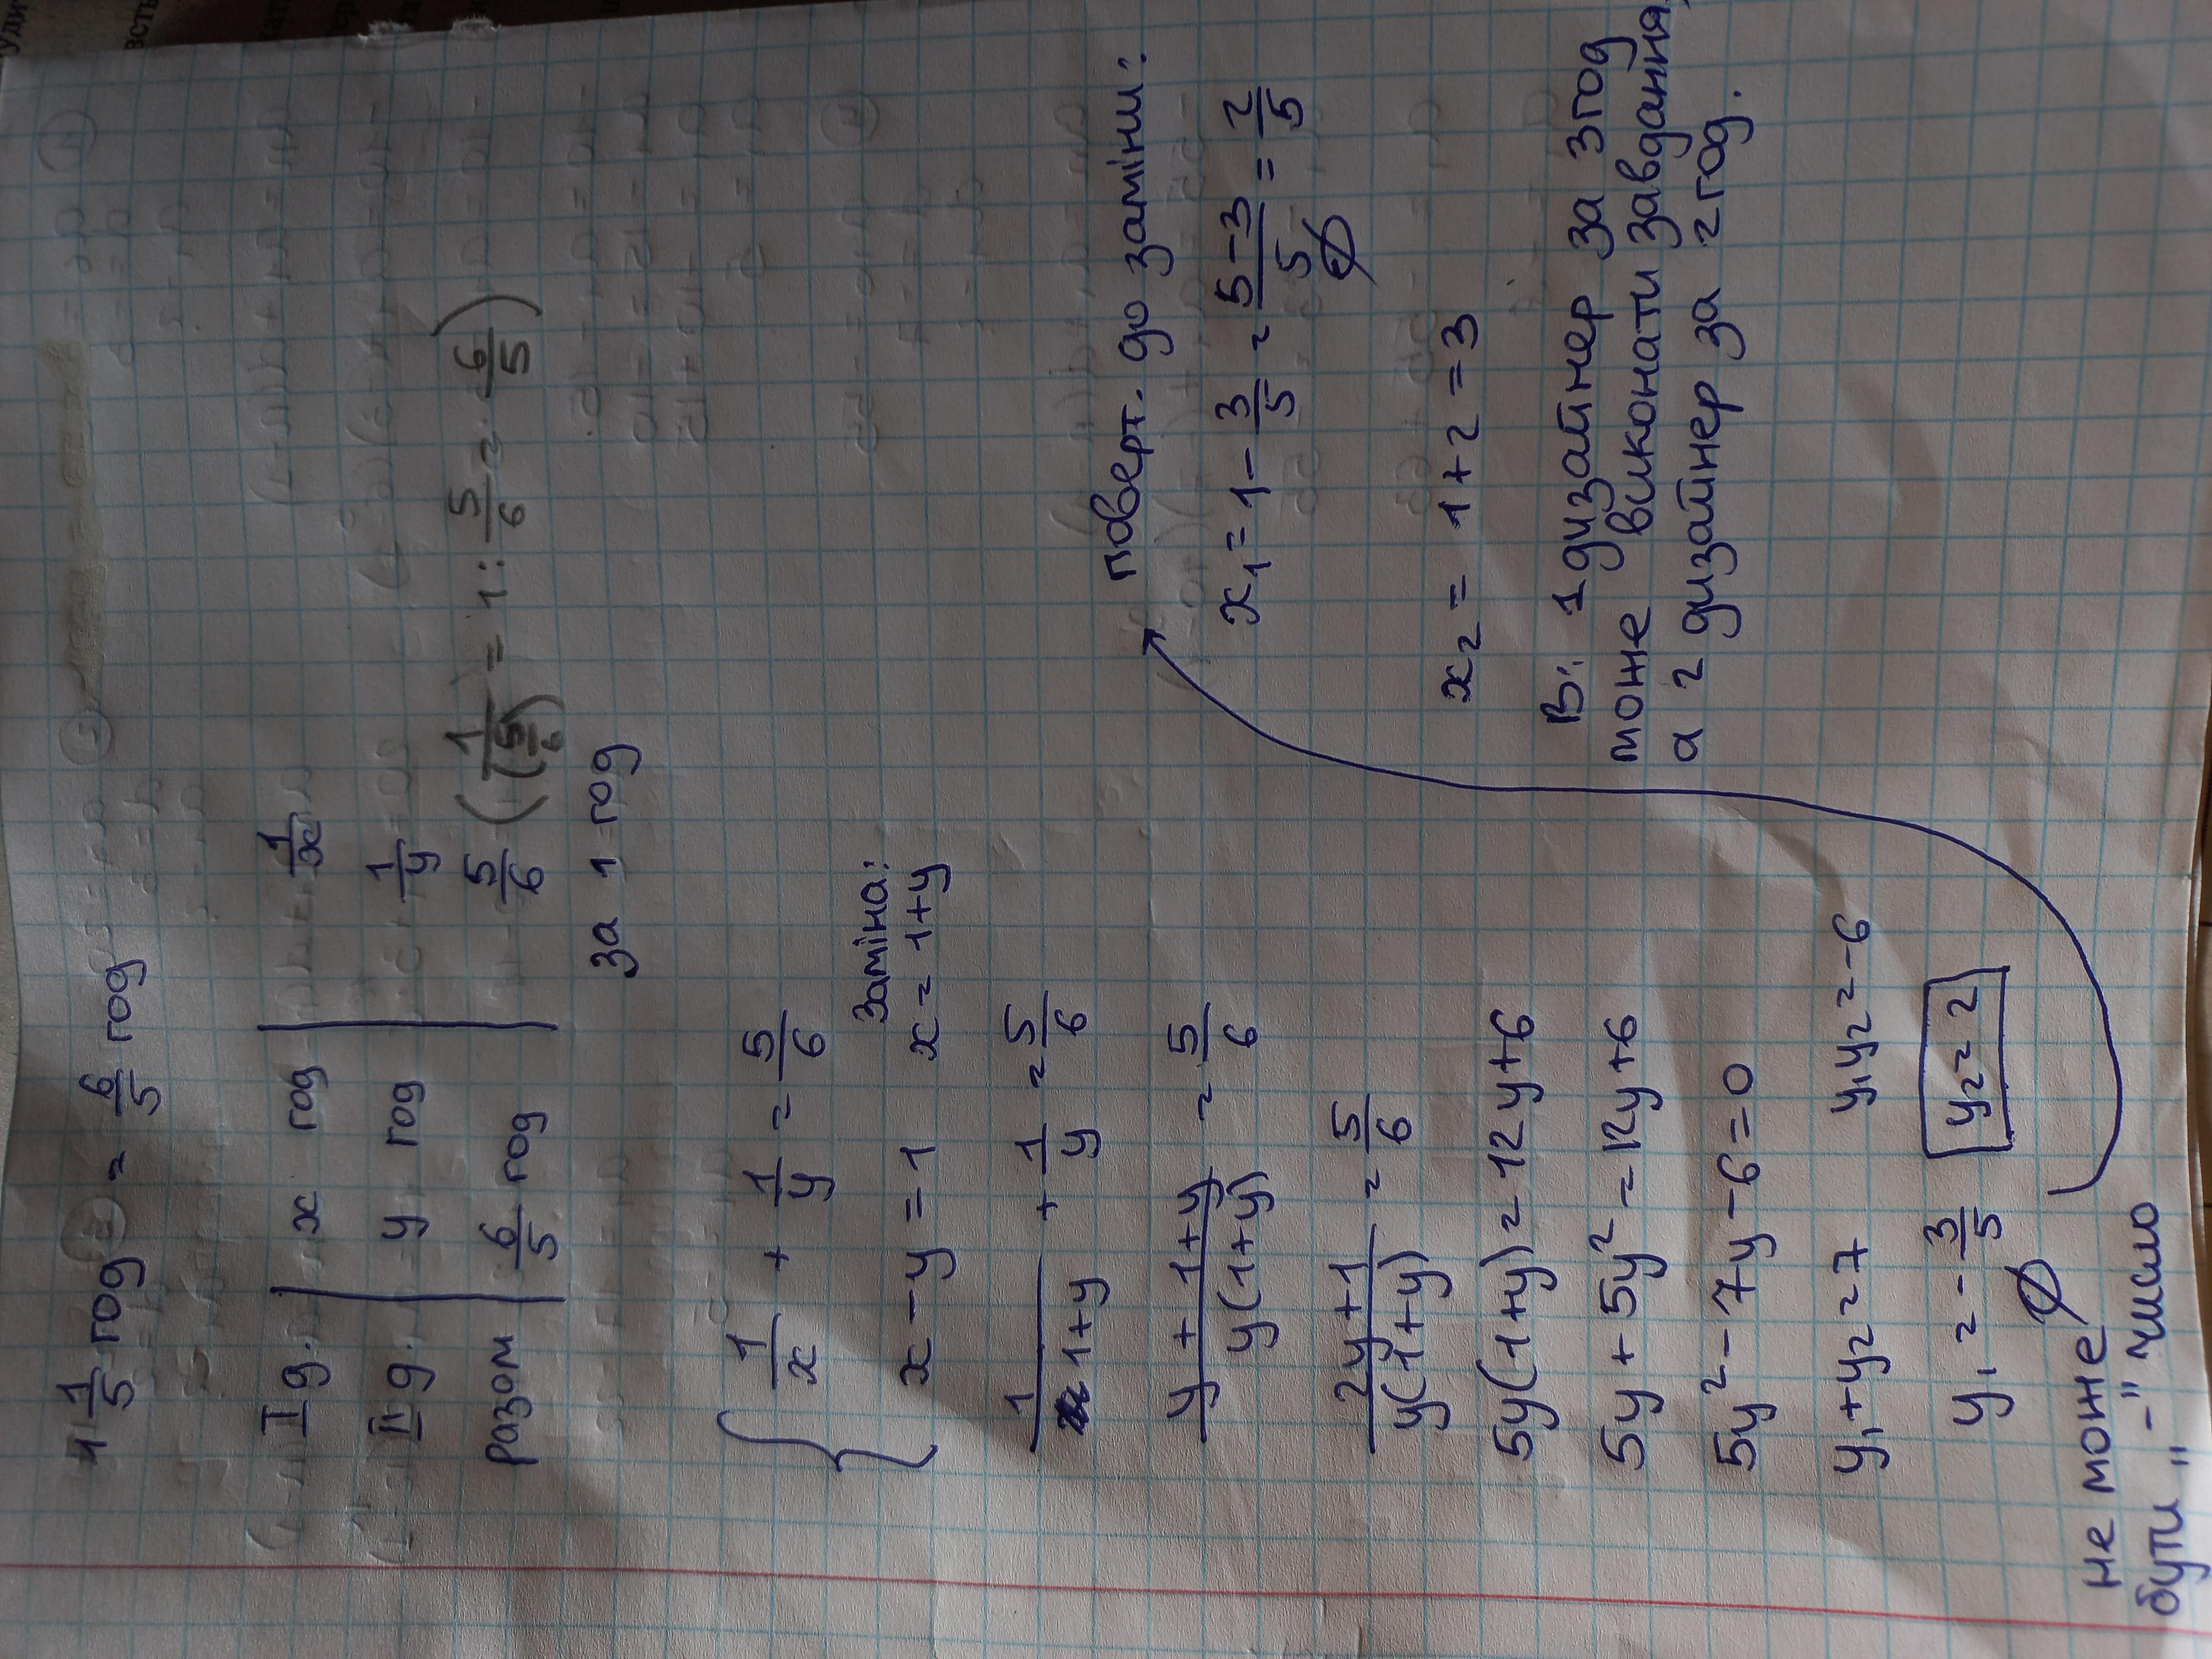 1 1/5 год = 6/5 год
I д. | x год | 1/x
II д. | y год | 1/y
разом | 6/5 год | 5/6 (1/(5/6) = 1 : 5/6 = 6/5)
за 1 год
{ 1/x + 1/y = 5/6
x - y = 1
Заміна:
x = 1+y
1/(1+y) + 1/y = 5/6
(y + 1+y)/(y(1+y)) = 5/6
(2y+1)/(y(1+y)) = 5/6
5y(1+y) = 12y+6
5y + 5y² = 12y+6
5y² - 7y - 6 = 0
y₁+y₂ = 7 y₁y₂ = -6
y₁ = -3/5 y₂ = 2
∅
не може
бути „-" число
поверт. до заміни:
x₁ = 1 - 3/5 = (5-3)/5 = 2/5
∅
x₂ = 1+2 = 3
В: 1 дизайнер за 3год
може виконати завдання,
а 2 дизайнер за 2 год.